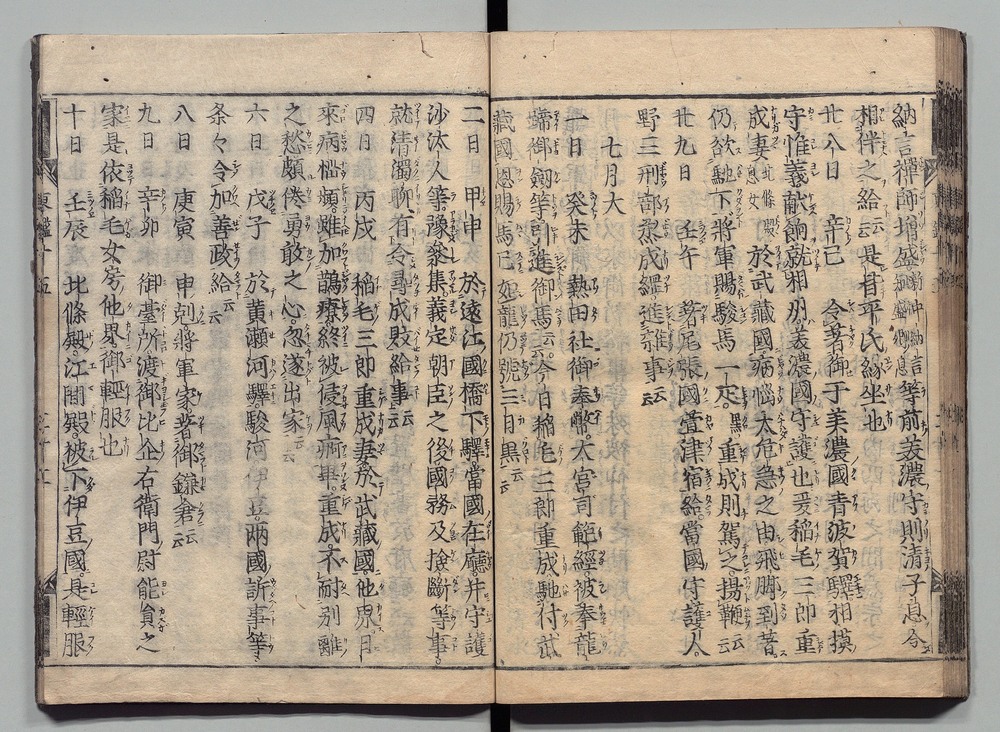 納言禪師増盛
等前美濃守則清子息 令
相伴之給云云是者平氏縁坐也
廿八日 辛巳 令著御于美濃國青波賀驛相摸
守惟義献餉就相州美濃國守護也爰稻毛三郎重
成妻 於武藏國病悩太危急之由飛脚到著
仍欲馳下將軍賜駿馬一疋 黒 重成則駕之揚鞭云云
廿九日 壬午 著尾張國萱津宿給當國守護人
野三刑部烝成綱進雜事云云
七月大
一日 癸未 熱田社御奉幣大宮司範經被奉龍
蹄御釼等引進御馬云云今日稻毛三郎重成馳付武
藏國恩賜馬已如龍仍號三日黒云云
二日 甲申 於遠江國橋下驛當國在廳并守護
沙汰人等豫參集義定朝臣之後國務及撿斷等事
就清濁聊有令尋成敗給事云云
四日 丙戌 稻毛三郎重成妻於武藏國他界日
來病悩頻雖加鵲療終被侵風痾畢重成不耐別離
之愁頗倦勇敢之心忽遂出家云云
六日 戊子 於黄瀬河驛駿河伊豆兩國訴事等
条々令加善政給云云
八日 庚寅 申剋將軍家著御鎌倉云云
九日 辛卯 御臺所渡御比企右衛門尉能員之
家是依稻毛女房他界御輕服也
十日 壬辰 北條殿江間殿被下伊豆國是輕服
東鑑十五